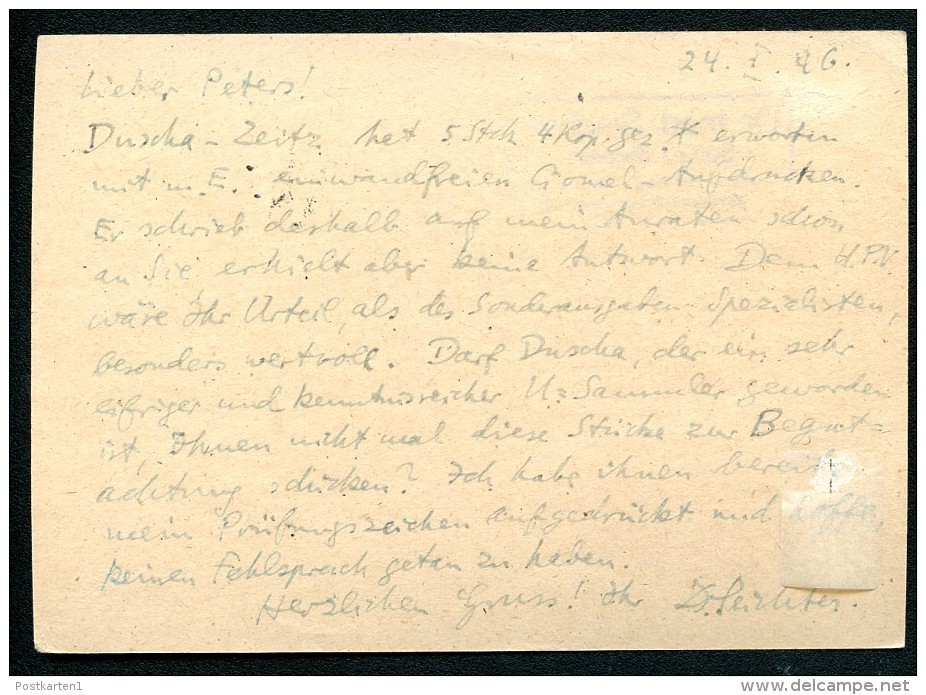 24. I. 46.
Lieber Peters!
Duscha-Zeitz hat 5 Stck 4 Kop. gez. * erworben
mit m. E. einwandfreien Gomel-Aufdrucken.
Er schrieb deshalb auf mein Anraten schon
an Sie, erhielt aber keine Antwort. Dem H.P.V.
wäre Ihr Urteil, als des Sonderausgaben-Spezialisten,
besonders wertvoll. Darf Duscha, der ein sehr
eifriger und kenntnisreicher U=Sammler geworden
ist, Ihnen nicht mal diese Stücke zur Begut=
achtung schicken? Ich habe ihnen bereits
mein Prüfungszeichen aufgedrückt und hoffe,
keinen Fehlspruch getan zu haben.
Herzlichen Gruss! Ihr
Postkarten1
http://www.delcampe.net